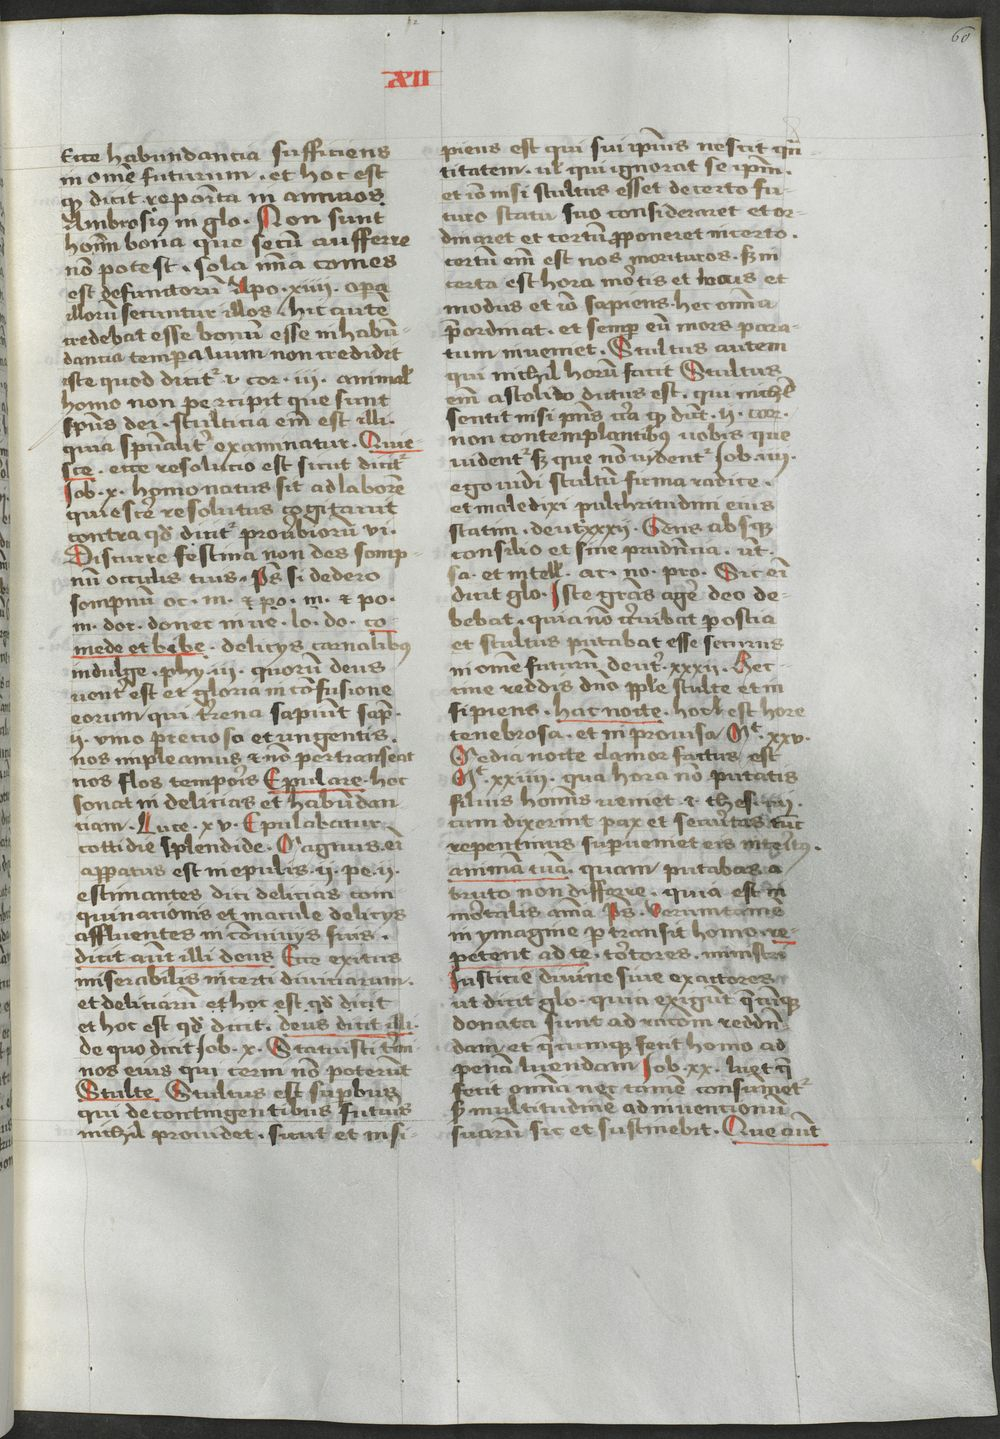 60
XII
Ecce habundancia sufficiens
in omē futurum . et hoc est
qꝫ dicit reposita in annos
Ambrosiꝰ in glo . Non sunt
hoīm bona que secū aufferre
nō potest . sola mīa comes
est defunctorū Apo . xiiii . opera
illorū secuntur illos . hic autē
credebat esse bonū esse in habū-
dancia temporalium non credidit
iste quod dicitᷣ i . cor . iii . animal'
homo non percipit que sunt
spūs dei . stulticia em̄ est illi .
quia spūalitᷣ examinatur . Quie-
sce . ecce resolucio est sicut dicitᷣ
Job . x . homo natus sit ad laborē
quiescēs resolutus cogitauit
contra qđ dicitᷣ prouerbiorū vi .
Discurre festina non des somp-
nū occulis tuis . Ps̄ si dedero
sompnū oc . m . et po . m . et po .
m . dor . donec inue . lo . do . co-
mede et bibe . delicijs carnalibꝰ
indulge . phy . iii . quorū deus
uentᷣ est et gloria in confusione
eorum qui terrena sapiūt sap̄ .
ii . vino precioso et ungentis .
nos impleamus et nō pertranseat
nos flos temporis Epulare . hoc
sonat in delicias et habūdan
ciam . Luce . xv . Epulabatur
cottidie splendide . Magnus . ei
apparatus est in epulis . ii . pe . ii .
estimantes diei delicias coin
quinacionis et macule delicijs
affluentes in cōuiuijs suis .
dicit aūt illi deus Ecce exitus
miserabilis incerti diuiciarum .
et deliciarū et hoc est qđ dicit
et hoc est qđ dicit . deus dicit illi .
de quo dicit Job . x . Statuisti tmi
nos eius qui term nō poterūt
Stulte Stultus est supbus
qui de contingentibus futuris
nichil prouidet . sicut et insi-
piens est qui sui ipīus nescit quā
titatem . ul' qui ignorat se ipm̄ .
et iō nisi stultus esset de certo fu-
turo statu suo consideraret et or-
dinaret et certū proponeret incerto .
certū em̄ est nos morituros . sꝫ in
certa est hora mortis et locus et
modus et iō sapiens . hec omnia
preordinat . et semper eū mors para-
tum inueniet . Stultus autem
qui nichil horū facit Stultus
em̄ a stolido dictus est . qui nichil
sentit nisi pn̄s cͣa qꝫ dn̄t . ii . cor .
non contemplantibus uobis que
uidentᷣ sꝫ que nō uidentᷣ Job . iiii .
ego uidi stultū firma radice .
et maledixi pulchritudini eius
statim . deut . xxxii . Gens absqꝫ
consilio et sine prudēcia . ut .
sa . et intell' . ac . no . pro . Sic ei
dicit glo . Iste grās agere deo de-
bebat . quia nō cribat postia
et stultus putabat esse securus
in omē futurū deutᷣ . xxxii . Hec-
cine reddis dn̄o pple stulte et in
sipiens . hac nocte . hoc est hore
tenebrosa . et inprouisa Mᵗ . xxv .
Media nocte clamor factus est
Mᵗ . xxiiii . qua hora nō putatis
filius hominis ueniet . i . thes . iiii .
cum dixerint pax et securitas tūc
repentinus superueniet eis interitus .
animā tuā . quam putabas a
bruto non differre . quia est in
mortalis aīa Ps̄ . Uerumtamē
in ymagine pertransit homo re-
petent ad te . tortores . ministri
Justicie diuine siue exactores
ut dicit glo . quia exigūt quecūqꝫ
donata sunt ad racōem reddēn-
dam et quecumqꝫ fecit homo ad
penā luendam Job . xx . luet que
fecit omīa nec tamē consumetᷣ
sꝫ multitudinē adinuencionū
suarū sic et sustinebit . Que aūt